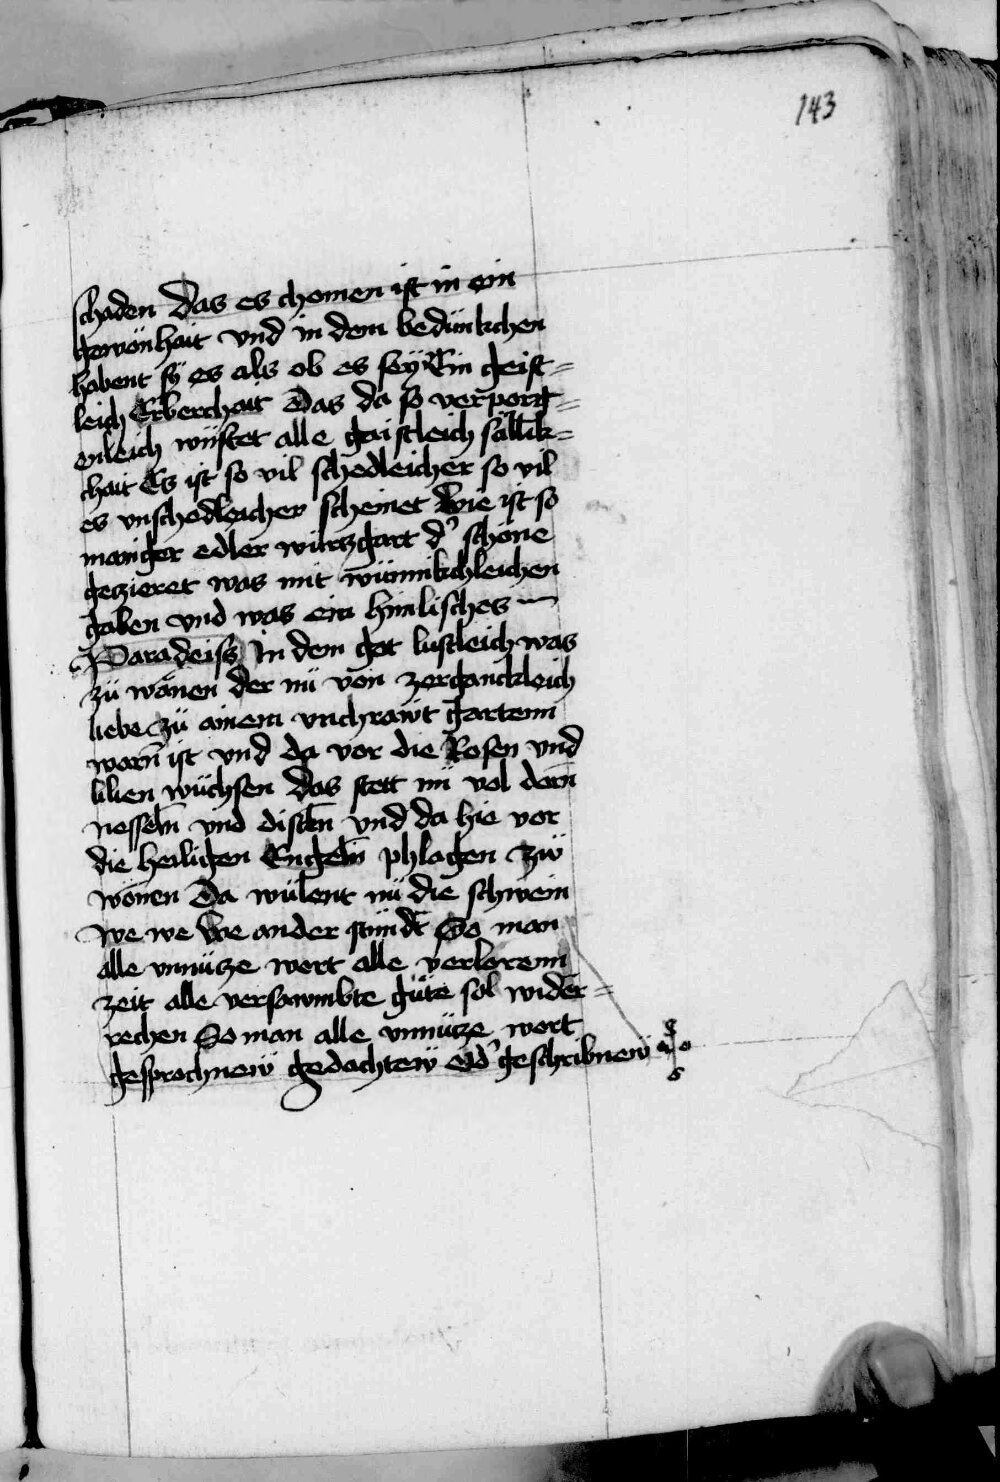 143
schaden Das es chomen ist in ein
gewönhait vnd in dem bedünkchen
habent sÿ es als ob es seÿ Ein geist=
leich Erberchait Das da so verporg=
enleich wüstet alle gaistleich sällik=
chait Es ist so vil schedleicher so vil
es vnschedleicher scheinet Wie ist so
maniger edler würczgart d' schöne
gecziret was mit wünnikchleichen
gaben vnd was ein himlisches
Paradeiss In dem got lustleich was
zü wänen der nü von zerganckleich
liebe zü ainem vnchrawt gartenn
worn̄ ist vnd da vor die Rosen vnd
lilien wüchsen Das stett nü vol dorn̄
nesseln̄ vnd distln̄ vnd da hie vor
die heiligen Engeln̄ phlagen zw
wönen Da wülent nü die schwein
we we Die ander stünd So man
alle vnnütze wort alle verlorenn
zeit alle versawmbte güte sol wider=
rechen So man alle vnnütze wort
gesprochnew gedachtew od' geschribnew